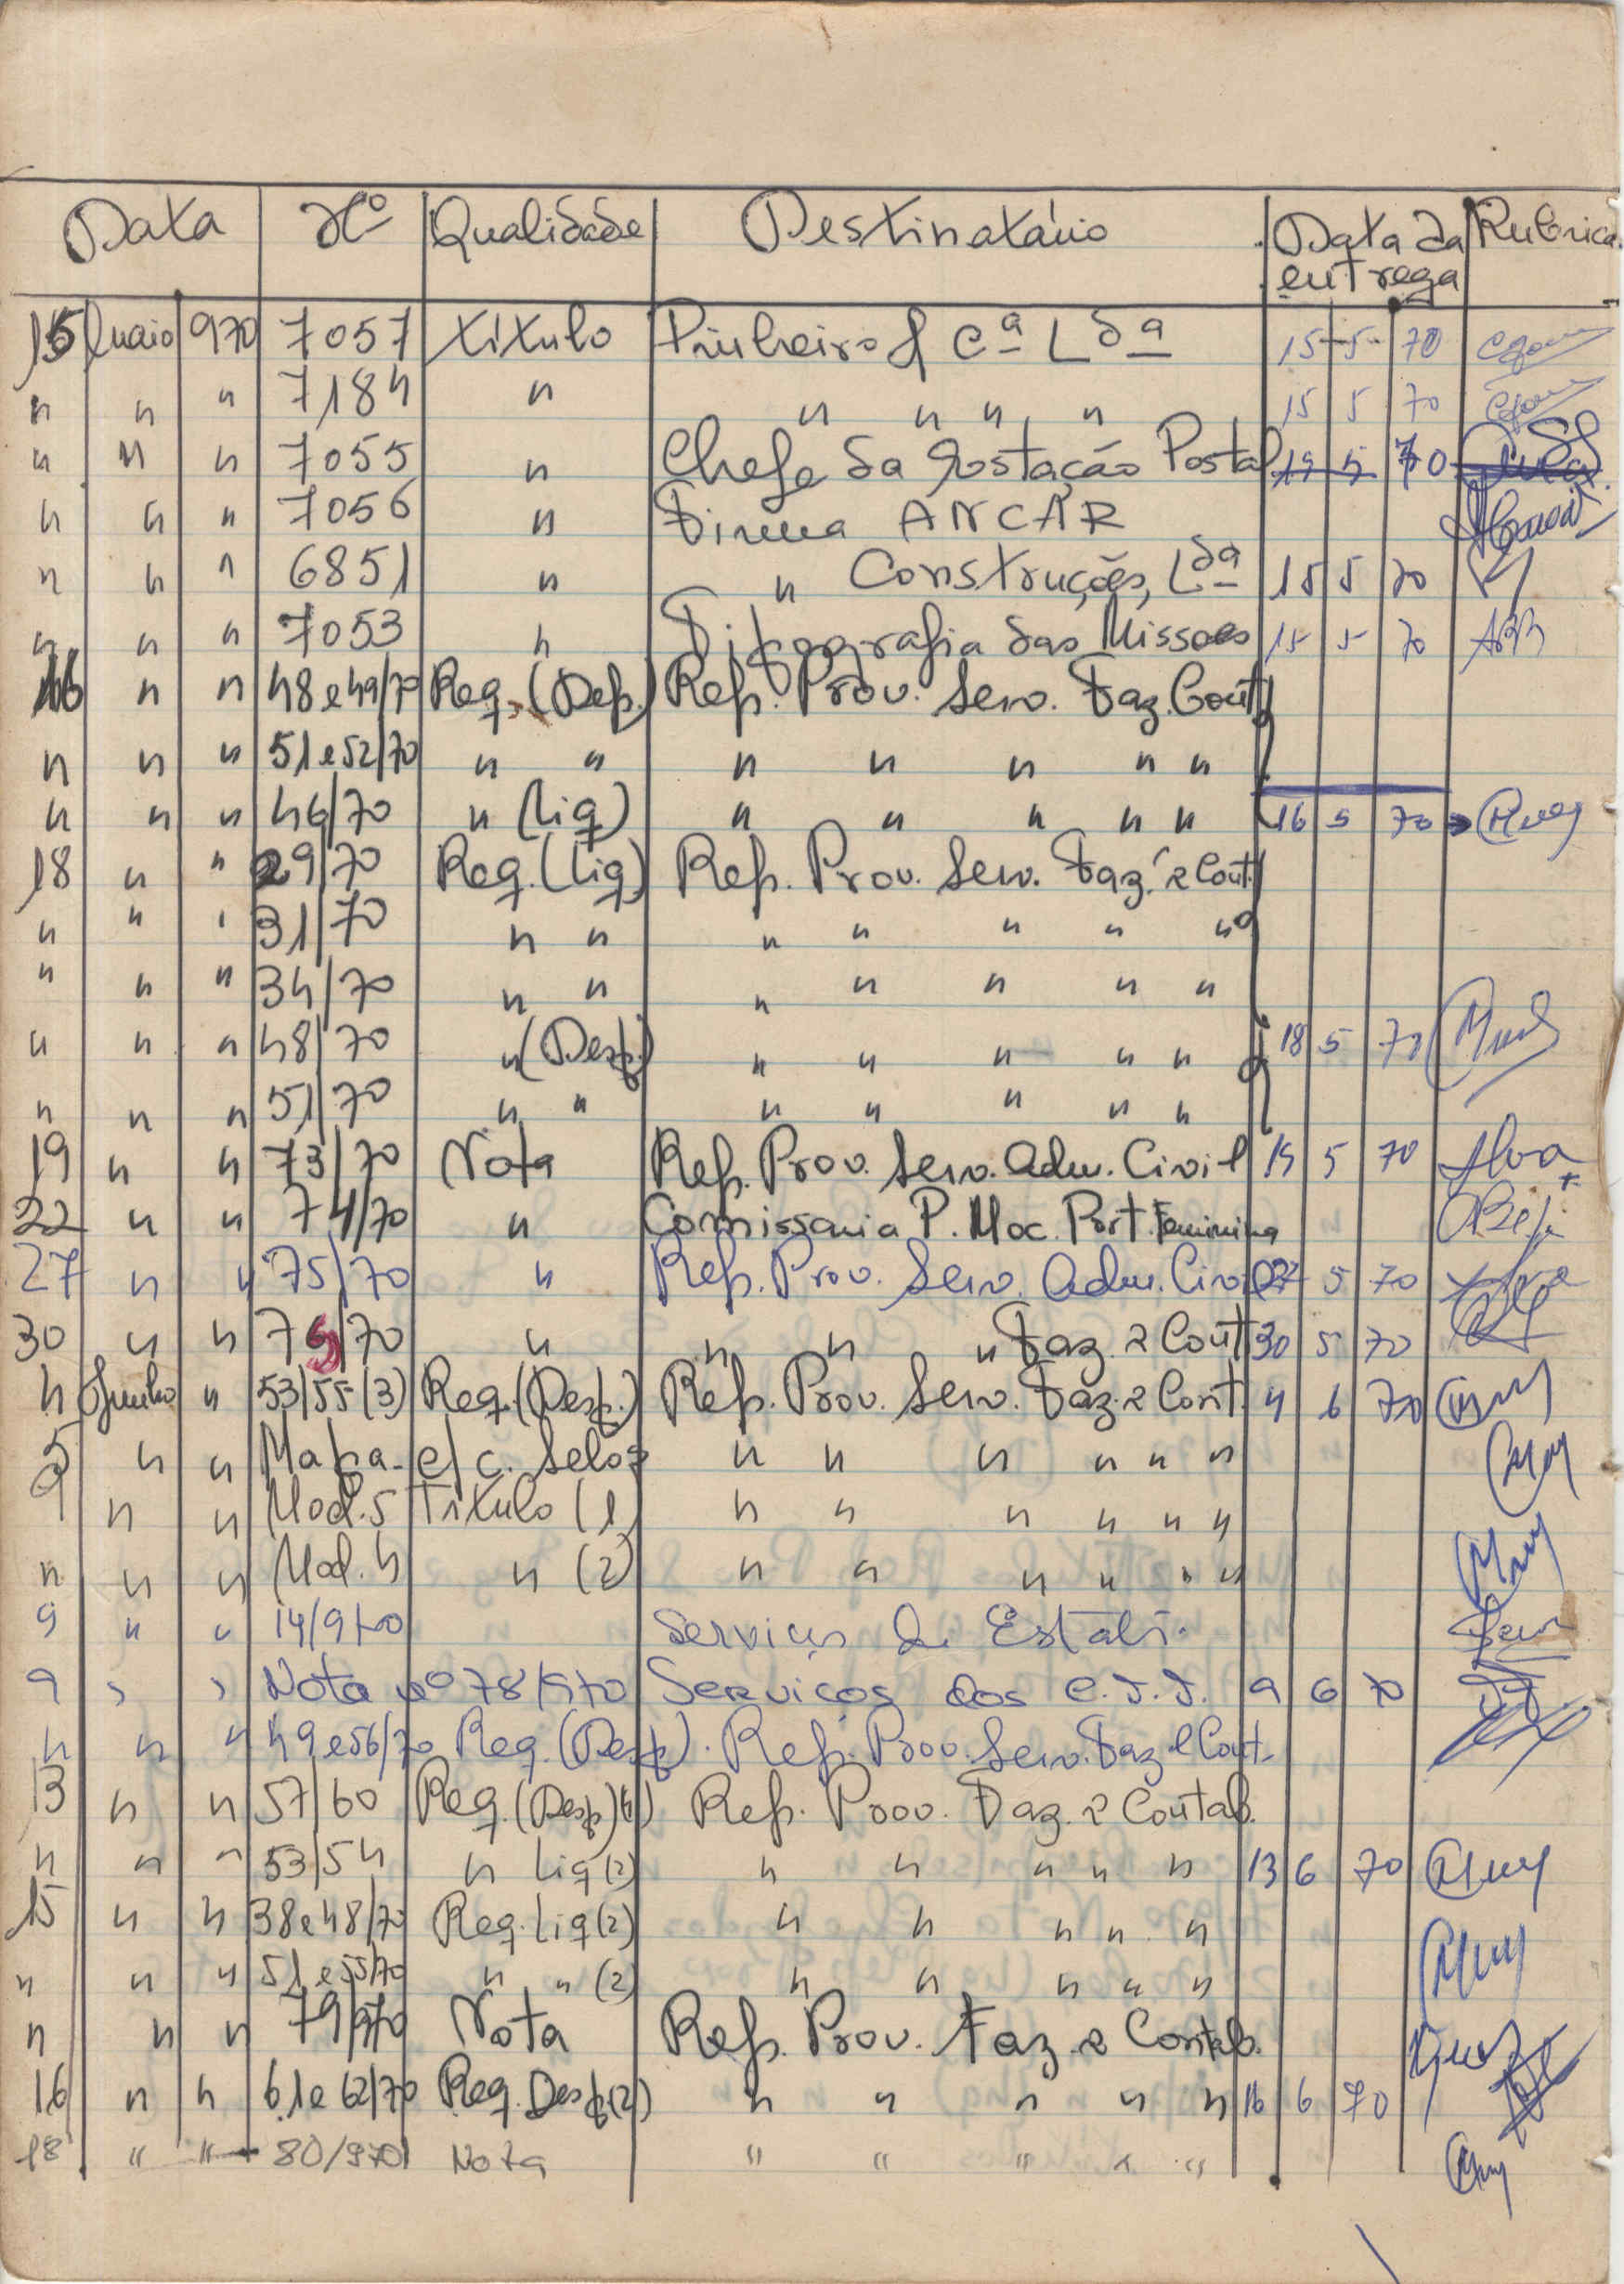 Data Nº Qualidade Destinatário Data da entrega Rubrica
15 maio 970 7057 Título Pinheiro & Cª Ldª 15 5 70
" " " 7184 " " " " " 15 5 70
" " " 7055 " Chefe da Estação Postal 19 5 70
" " " 7056 " Firma ANCAR
" " " 6851 " " Construções, Ldª 15 5 70
" " " 7053 " Tipografia das Missoes 15 5 70
16 " " 48 e 49/70 Req. (Desp.) Rep. Prov. Serv. Faz. Cont
" " " 51 e 52/70 " " " " " " "
" " " 46/70 " (Liq) " " " " " 16 5 70
18 " " 29/70 Req. (Liq) Rep. Prov. Serv. Faz. e Cont.
" " " 31/70 " " " " " " "
" " " 34/70 " " " " " " "
" " " 48/70 " (Desp.) " " " " " 18 5 70
" " " 51/70 " " " " " " "
19 " " 73/70 Nota Rep. Prov. Serv. Adm. Civil 19 5 70
22 " " 74/70 " Comissaria P. Moc. Port. Feminina
27 " " 75/70 " Rep. Prov. Serv. Adm. Civil 27 5 70
30 " " 7 /70 " " " " Faz. e Cont 30 5 70
4 Junho " 53/55 (3) Req. (Desp.) Rep. Prov. Serv. Faz. e Cont. 4 6 70
5 " " Mapa - c/c. Selos " " " " " "
9 " " Mod. 5 Título (1) " " " " " "
" " " Mod. 4 " (2) " " " " " "
9 " " 14/9/70 Serviços de Estatís.
9 " " Nota nº 78/970 Serviços dos C.T.T. 9 6 70
" " " 49 e 56/70 Req. (Desp). Rep. Prov. Serv. Faz e Cont.
13 " " 57/60 Req. (Desp) (4) Rep. Prov. Faz. e Contab.
" " " 53/54 " Liq (2) " " " " " 13 6 70
15 " " 38 e 48/70 Req. Liq (2) " " " " "
" " " 51 e 55/70 " " (2) " " " " "
" " " 79/970 Nota Rep. Prov. Faz. e Contab.
16 " " 61 e 62/70 Req. Desp (2) " " " " " 16 6 70
18 " " 80/970 Nota " " " " "